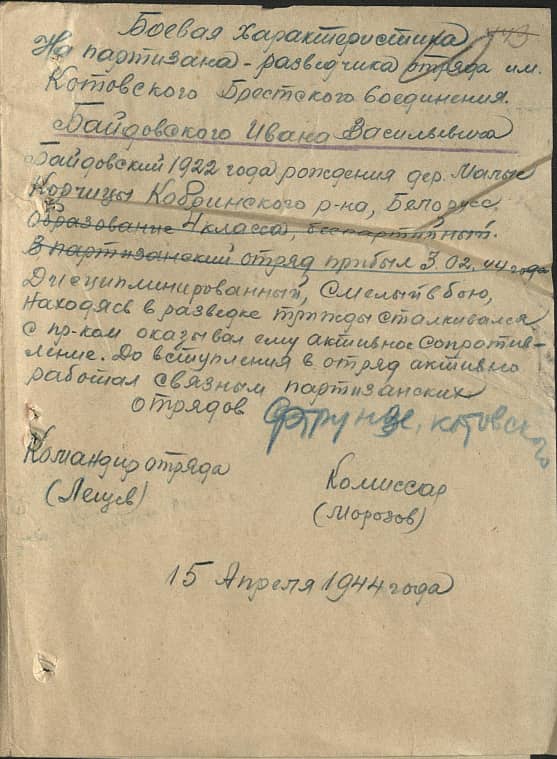 Боевая характеристика
На партизана-разведчика отряда им.
Котовского Брестского соединения.
Байдовского Ивана Васильевича
Байдовский 1922 года рождения дер. Малые
Корчицы Кобринского р-на, Белорусс.
образование 4 класса, беспартийный.
В партизанский отряд прибыл 3.02.44 года
Дисциплинированный, смелый в бою,
находясь в разведке трижды сталкивался
с пр-ком оказывал ему активное сопротив-
ление. До вступления в отряд активно
работал связным партизанских
отрядов Фрунзе, котовского
Командир отряда
(Лещев)
Комиссар
(Морозов)
15 Апреля 1944 года